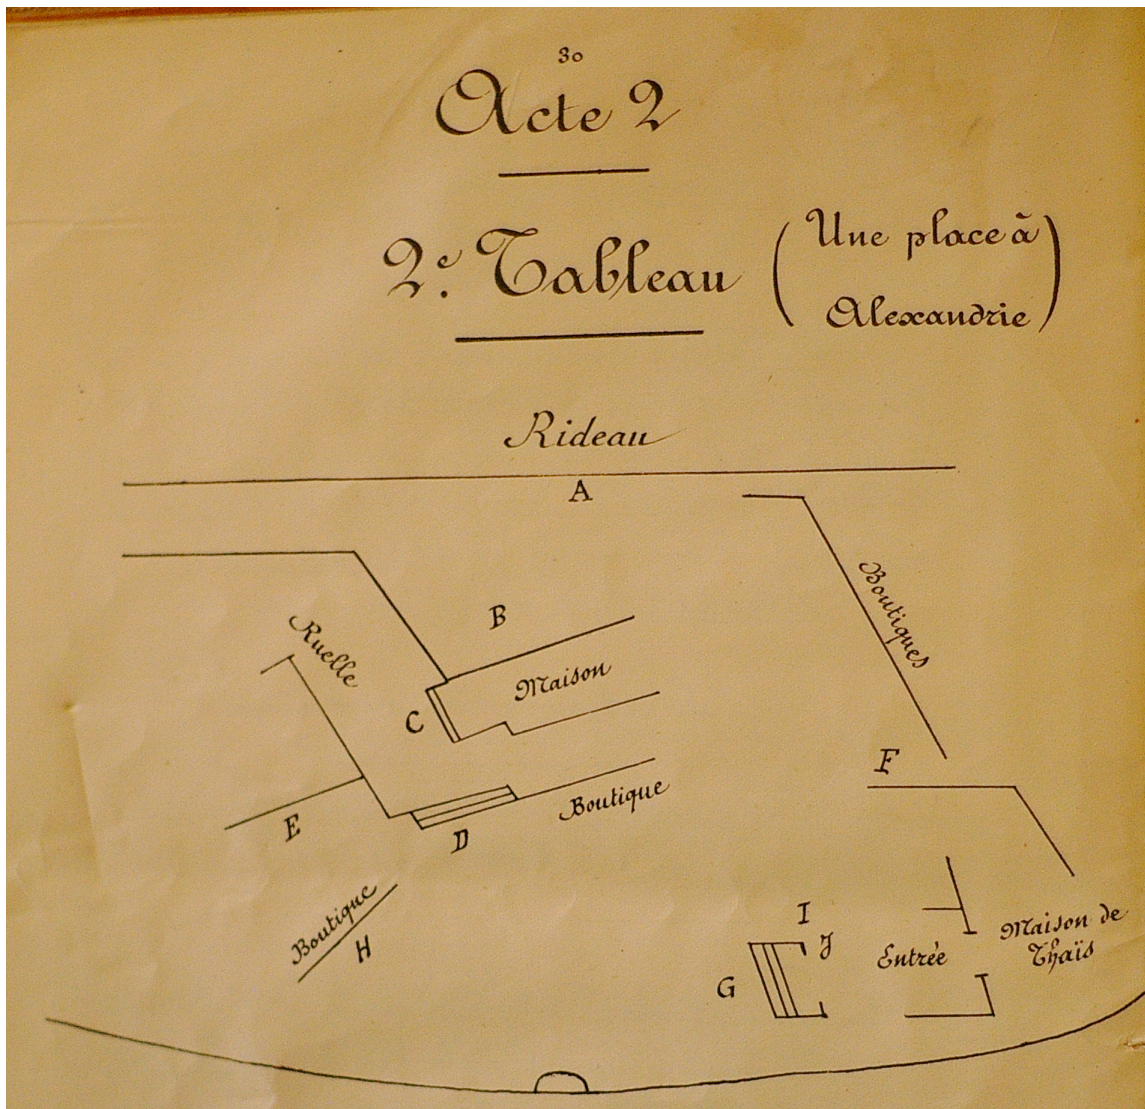 30
Acte 2
2.e Tableau
(Une place à
Alexandrie)
Rideau
A
Boutiques
B
Ruelle
Maison
C
F
Boutique
E
D
Boutique
H
I
J
Maison de
Thaïs
Entrée
G